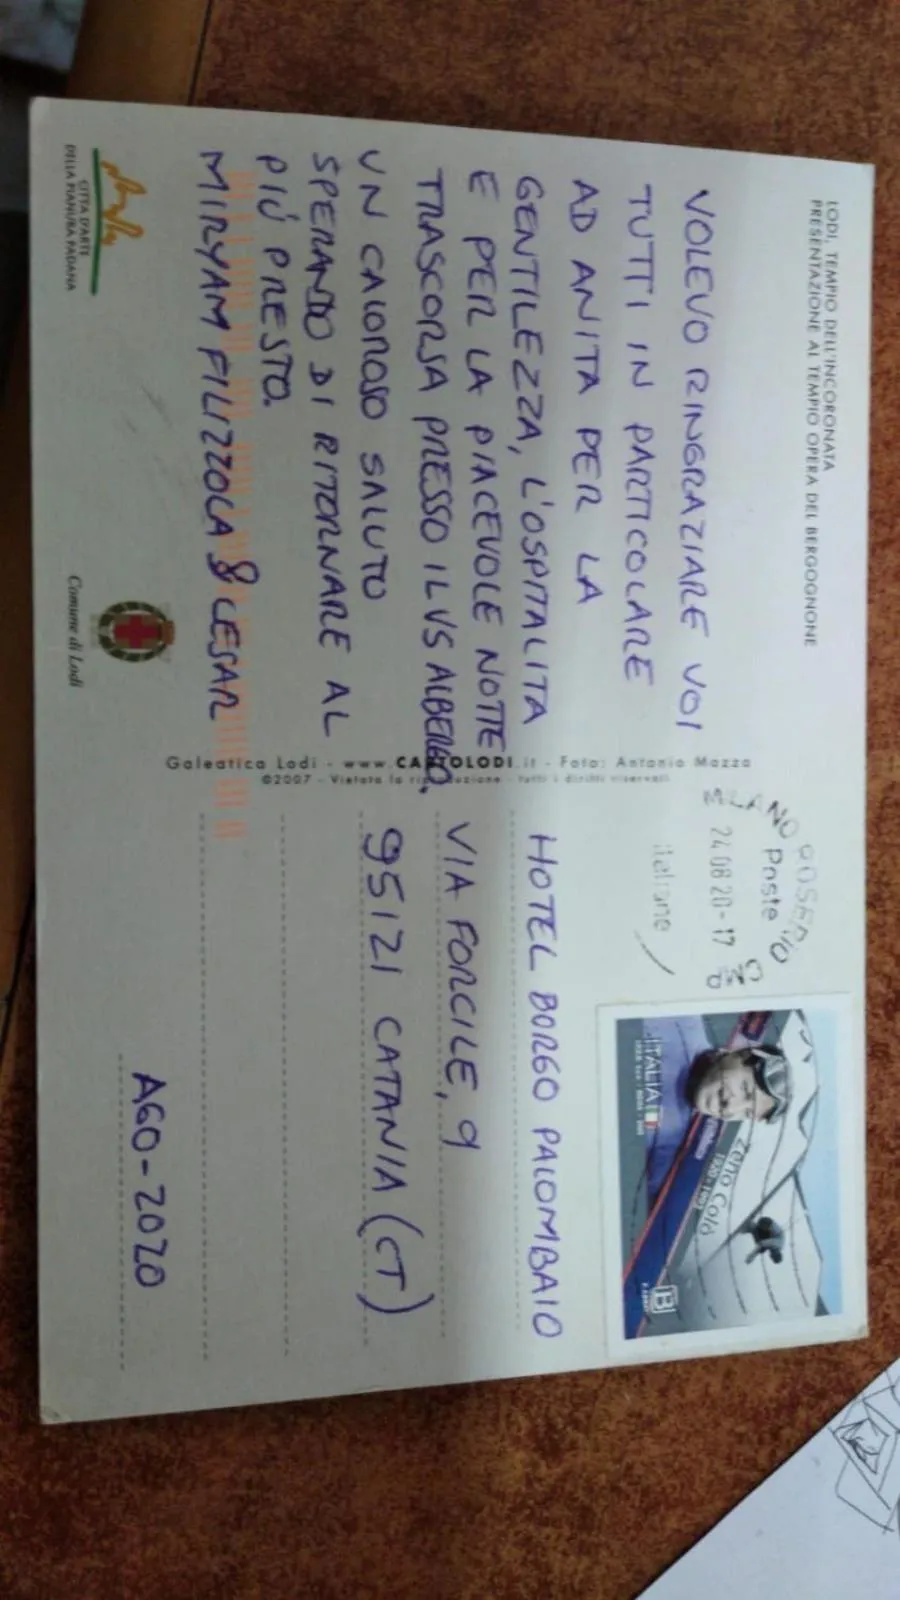 LODI, TEMPIO DELL'INCORONATA
PRESENTAZIONE AL TEMPIO OPERA DEL BERGOGNONE
VOLEVO RINGRAZIARE VOI
TUTTI IN PARTICOLARE
AD ANITA PER LA
GENTILEZZA, L'OSPITALITA
E PER LA PIACEVOLE NOTTE
TRASCORSA PRESSO IL VS ALBERGO.
UN CALOROSO SALUTO
SPERANDO DI RITORNARE AL
PIÚ PRESTO.
MIRYAM FILIZZOLA & CESAR
CITTÀ D'ARTE
DELLA PIANURA PADANA
Comune di Lodi
Galeatica Lodi - www.CARTOLODI.it - Foto: Antonio Mazza
©2007 - Vietata la riproduzione - tutti i diritti riservati
MILANO ROSERIO
Poste
24.08.20-17
italiane
ITALIA
Zeno Colò
1920-1993
B
HOTEL BORGO PALOMBAIO
VIA FORCILE, 9
95121 CATANIA (CT)
AGO-2020